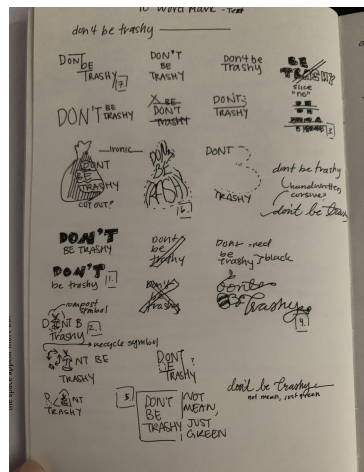 10 word mark - Text
don't be trashy
DON'T
BE
TRASHY
7.
DON'T
BE
TRASHY
Don't be
trashy
BE
TRASHY
slice
"no"
DON'T BE
TRASHY
BE
DON'T
TRASHY
DON'T
TRASHY
3.
ironic
DONT
BE
TRASHY
CUT OUT?
DON'T
BE
TRASH
6.
DONT
TRASHY
dont be trashy
handwritten
cursive?
don't be trashy
DON'T
BE TRASHY
dont
be
trashy
Dont - red
be
trashy > black
DON'T
be trashy
1.
don't
be
trashy
dont
Be Trashy
9.
compost
symbol
D NT B
Trashy
2.
recycle symbol
NT BE
TRASHY
DONT
BE
TRASHY
D NT
TRASHY
5.
DON'T
BE
TRASHY
NOT
MEAN,
JUST
GREEN
don't be trashy
not mean, just green